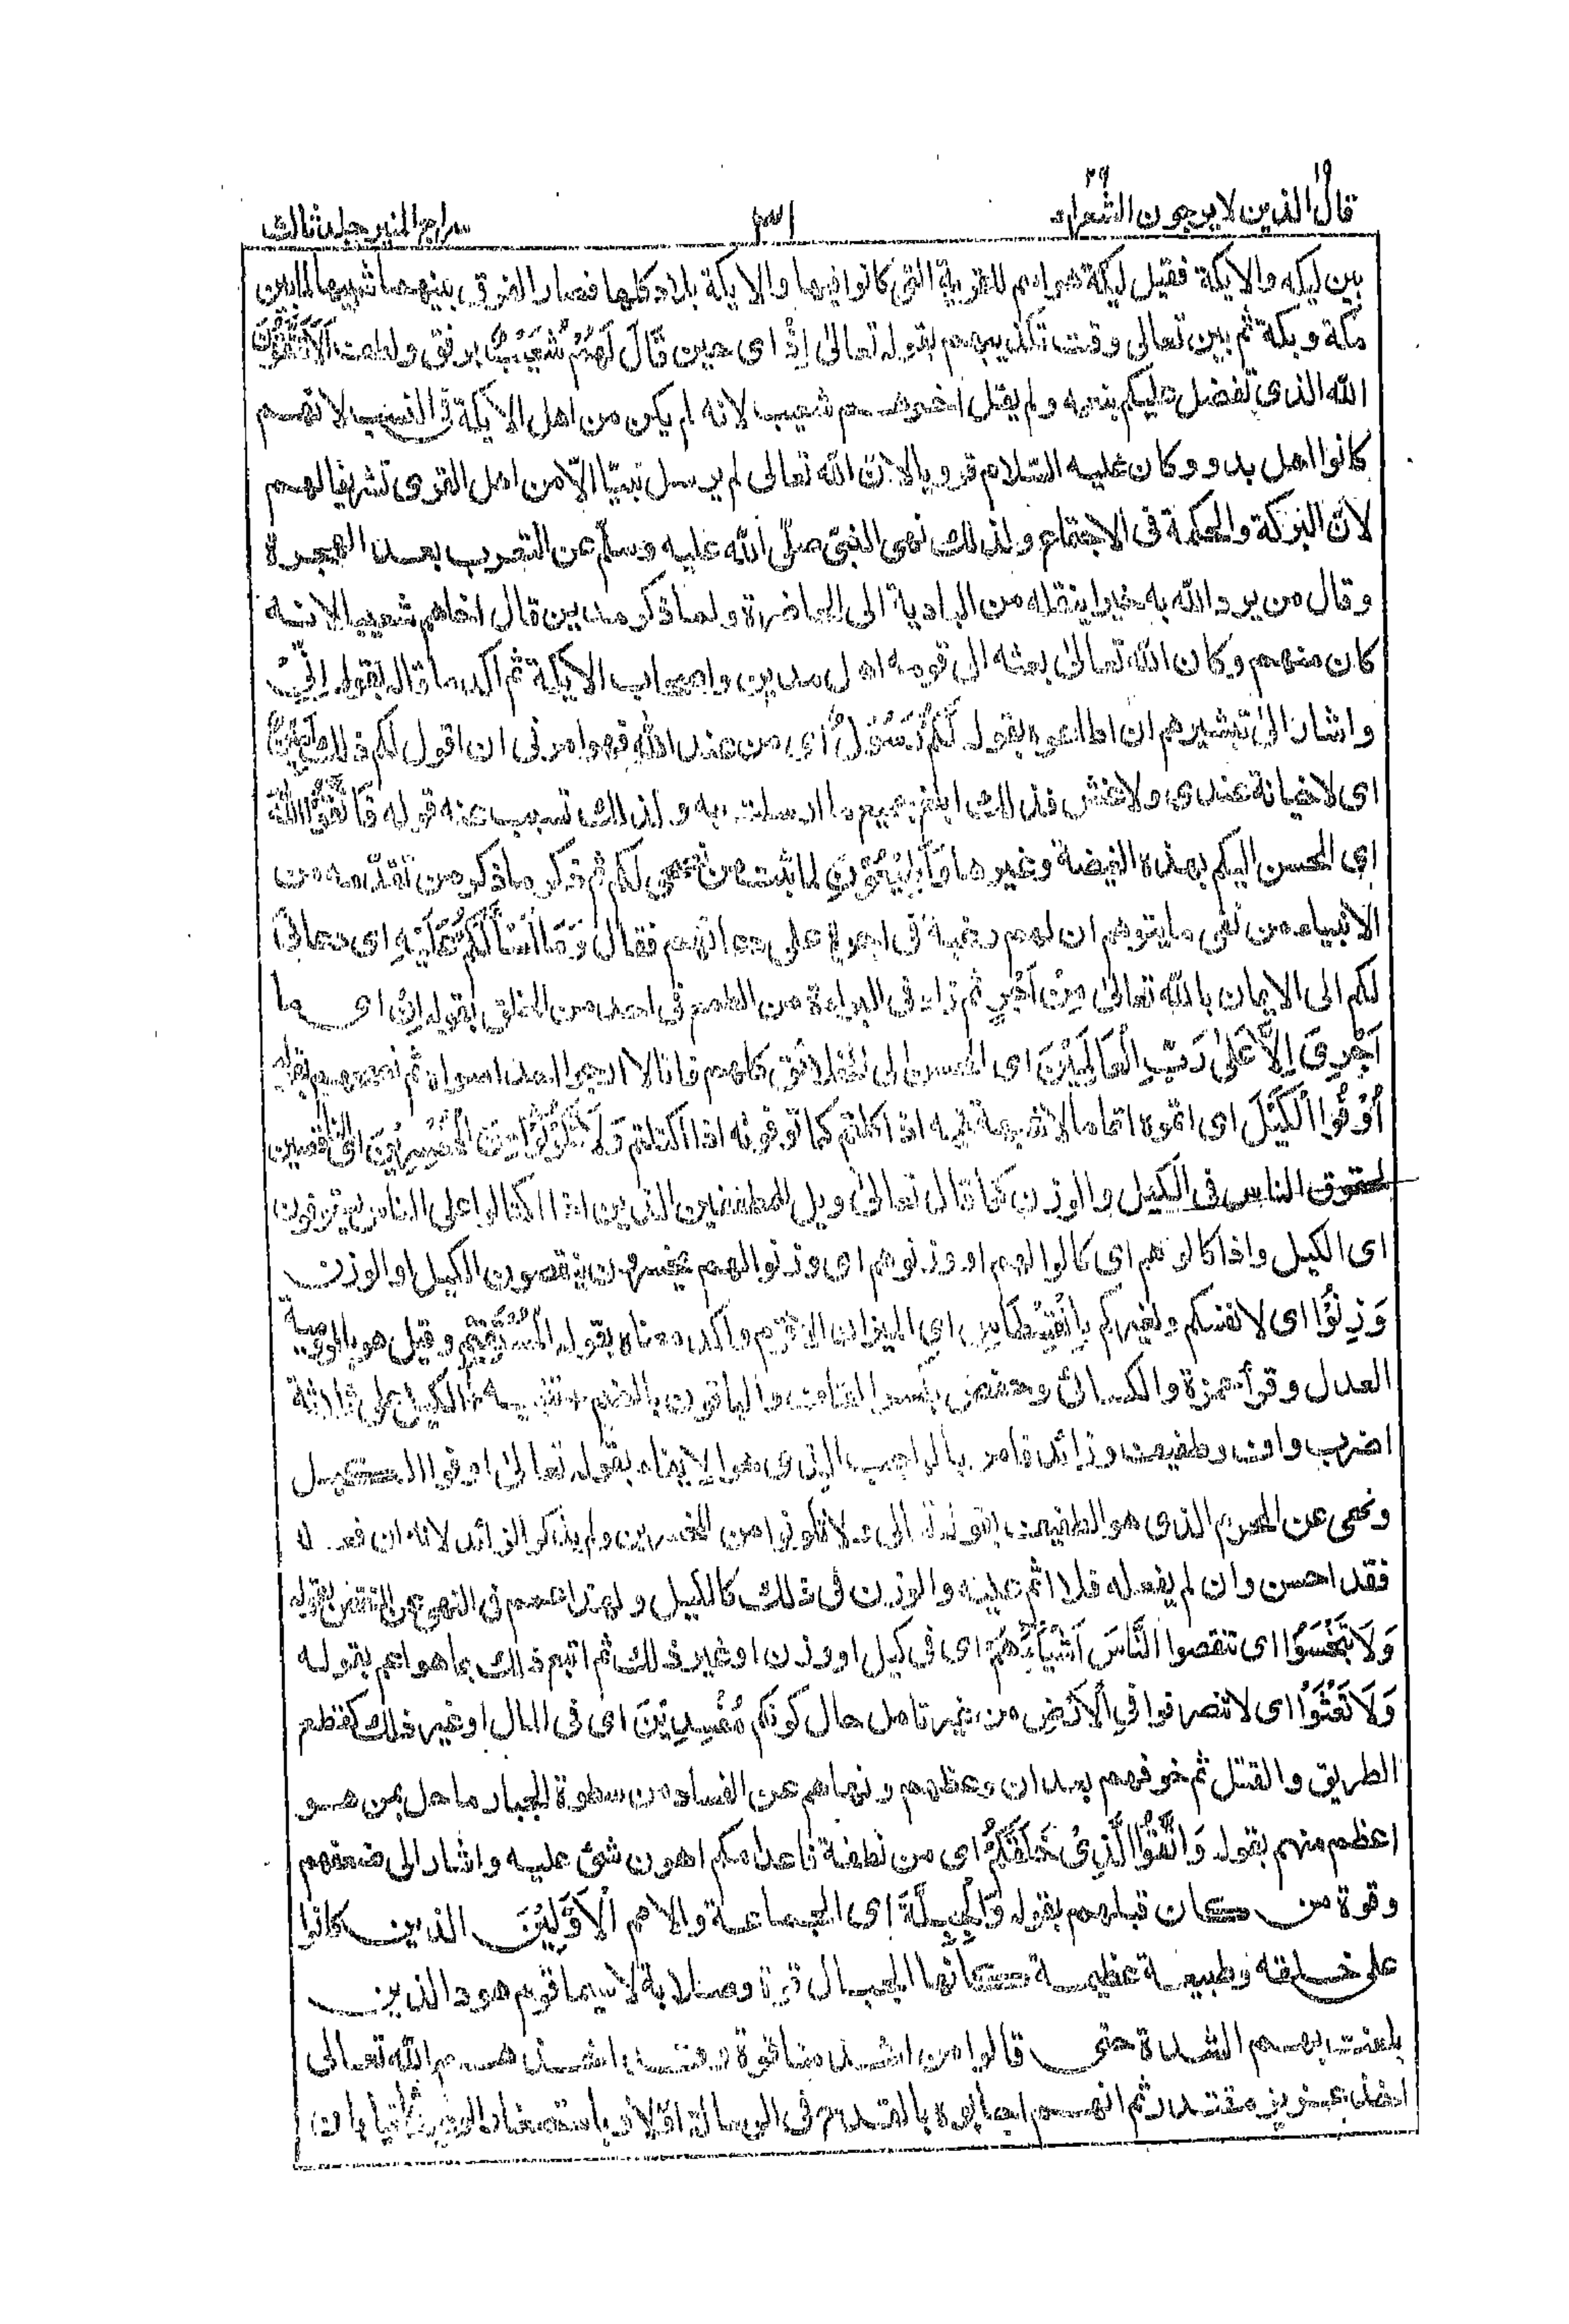 قال الذين لا يرجون الشعراء
سراج المنير جلد ثالث
بين ليكه والايكة فقيل ليكة هواسم للقرية التى كانوا فيها والايكة بلاد كلها فصار الفرق بينهما شبيها لما بين
مكة وبكة ثم بين تعالى وقت تكذيبهم بقوله تعالىٰ اِذْ اى حين قَالَ لَهُمْ شُعَيْبٌ برفق ولطف اَلَا تَتَّقُوْنَ
الله الذى تفضل عليكم بنعمه ولم يقل اخوهم شعيب لانه لم يكن من اهل الايكة فى النسب لانهم
كانوا اهل بدو وكان عليه السّلام قرويا لانّ الله تعالى لم يرسل نبيّا الّا من اهل القرى تشريفا لهم
لانّ البركة والحكمة فى الاجتماع ولذلك نهى النبى صلّى الله عليه وسلّم عن التعرب بعد الهجرة
وقال من يرد الله به خيرا ينقله من البادية الى الحاضرة ولما ذكر مدين قال اخاهم شعيبا لانه
كان منهم وكان الله تعالىٰ بعثه الى قومه اهل مدين واصحاب الايكة ثم اكد ما قاله بقوله اِنِّىْ
واشار الىٰ تبشيرهم ان اطاعوه بقوله لَكُمْ رَسُوْلٌ اى من عند الله فهو امرنى ان اقول لكم ذلك اَمِيْنٌ
اى لا خيانة عندى ولا غش فذلك ابلغ جميع ما ارسلت به ولذلك تسبب عنه قوله فَاتَّقُوا اللهَ
اى المحسن اليكم بهذه الغيضة وغيرها وَاَطِيْعُوْنِ لما ثبت من نصحى لكم ثم ذكر ما ذكر من تقدّمه من
الانبياء من نفى ما يتوهم ان لهم رغبة فى اجرة على دعائهم فقال وَمَا اَسْاَلُكُمْ عَلَيْهِ اى دعائى
لكم الى الايمان بالله تعالىٰ مِنْ اَجْرٍ ثم زاد فى البراءة من الطمع فى احد من الخلق بقوله اِنْ اى ما
اَجْرِىَ اِلَّا عَلىٰ رَبِّ الْعَالَمِيْنَ اى المحسن الى الخلائق كلهم فانا لا ارجو احدا سواه ثم نصحهم بقوله
اَوْفُوا الْكَيْلَ اى اتموه اتماما لا شبهة فيه اذا كلتم كما توفونه اذا اكتلتم وَلَا تَكُوْنُوْا مِنَ الْمُخْسِرِيْنَ اى الناقصين
لحقوق الناس فى الكيل والوزن كما قال تعالىٰ ويل للمطففين الذين اذا اكتالوا على الناس يستوفون
اى الكيل واذا كالوهم اى كالوا لهم او وزنوهم اى وزنوا لهم يخسرون ينقصون الكيل او الوزن
وَزِنُوْا اى لانفسكم ولغيركم بِالْقِسْطَاسِ اى الميزان الاقوم واكد معناه بقوله الْمُسْتَقِيْمِ وقيل هو بالرومية
العدل وقرأ حمزة والكسائى وحفص بكسر القاف والباقون بالضم تنبيه الكيل على ثلاثة
اضرب واف وطفيف وزائد فامر بالواجب الذى هو الايفاء بقوله تعالىٰ اوفوا الكيل
ونهى عن المحرم الذى هو الطفيف بقوله تعالى ولا تكونوا من المخسرين ولم يذكر الزائد لانه ان فعله
فقد احسن وان لم يفعله فلا اثم عليه والوزن فى ذلك كالكيل ولهذا عمم فى النهى عن النقص بقوله
وَلَا تَبْخَسُوْا اى تنقصوا النَّاسَ اَشْيَاءَهُمْ اى فى كيل او وزن او غير ذلك ثم اتبع ذلك بما هو اعم بقوله
وَلَا تَعْثَوْا اى لا تتصرفوا فِى الْاَرْضِ من غير تامل حال كونكم مُفْسِدِيْنَ اى فى المال او غير ذلك كقطع
الطريق والقتل ثم خوفهم بعد ان وعظهم ونهاهم عن الفساد من سطوة الجبار ما حل بمن هو
اعظم منهم بقوله وَاتَّقُوا الَّذِىْ خَلَقَكُمْ اى من نطفة فاعدامكم اهون شئ عليه واشار الى ضعفهم
وقوة من كان قبلهم بقوله وَالْجِبِلَّةَ اى الجماعة والامم الْاَوَّلِيْنَ الذين كانوا
على خلقة وطبيعة عظيمة كأنها الجبال قوة وصلابة لا سيما قوم هود الذين
بلغت بهم الشدة حتى قالوا من اشد منا قوة وقد اخذهم الله تعالى
اخذ عزيز مقتدر ثم انهم اجابوه بالقدح فى الرسالة اولا وباستصغار الوعيد ثانيا بان